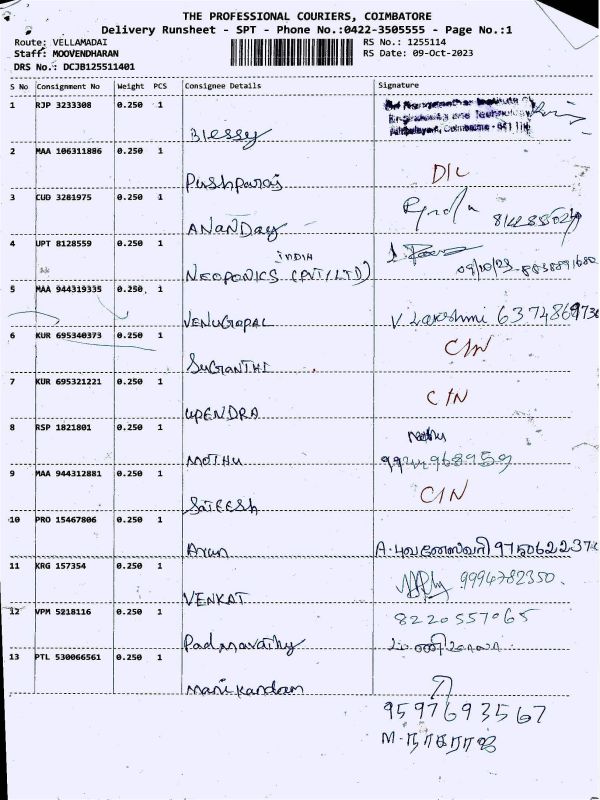 THE PROFESSIONAL COURIERS, COIMBATORE
Delivery Runsheet - SPT - Phone No.:0422-3505555 - Page No.:1
Route: VELLAMADAI RS No.: 1255114
Staff: MOOVENDHARAN RS Date: 09-Oct-2023
DRS No.: DCJB125511401
S No Consignment No Weight PCS Consignee Details Signature
1 RJP 3233308 0.250 1
Blessy
2 MAA 106311886 0.250 1
Pushparaj D/L
3 CUD 3281975 0.250 1
ANANDAy
4 UPT 8128559 0.250 1
NEOPONICS INDIA (PVT/LTD) 09/10/23
5 MAA 944319335 0.250 1
VENUGOPAL V. Lakshmi 637486973
6 KUR 695340373 0.250 1
SUGANTHI C/N
7 KUR 695321221 0.250 1
UPENDRA C/N
8 RSP 1821801 0.250 1
MOTHU
9 MAA 944312881 0.250 1
SATEESh C/N
10 PRO 15467806 0.250 1
Arun A. புவனேஸ்வரி 975062237
11 KRG 157354 0.250 1
VENKAT 9994782350.
12 VPM 5218116 0.250 1 8220557065
Padmavathy
13 PTL 530066561 0.250 1
Manikandam
9597693567
M. நாகராஜ